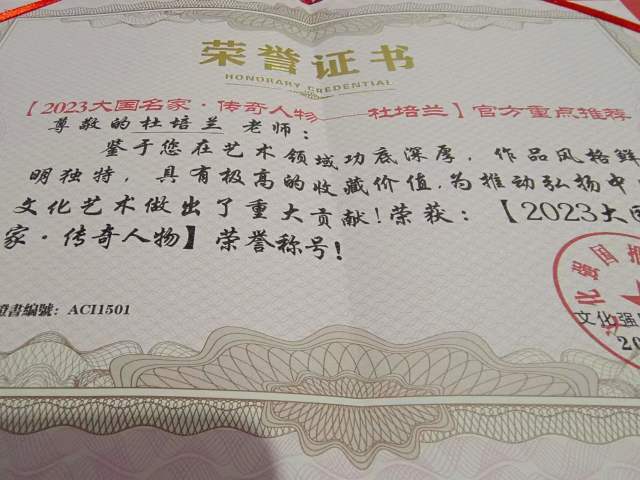 荣誉证书
HONORARY CREDENTIAL
【2023大国名家·传奇人物——杜培兰】官方重点推荐
尊敬的杜培兰 老师：
鉴于您在艺术领域功底深厚，作品风格鲜
明独特，具有极高的收藏价值，为推动弘扬中
文化艺术做出了重大贡献！荣获：【2023大国
家·传奇人物】荣誉称号！
證書編號：ACI1501
化强国推
文化强
20